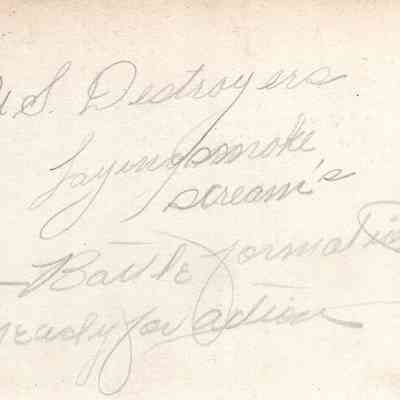 U.S. Destroyers
Laying smoke
scream's
— Battle formation
ready for action